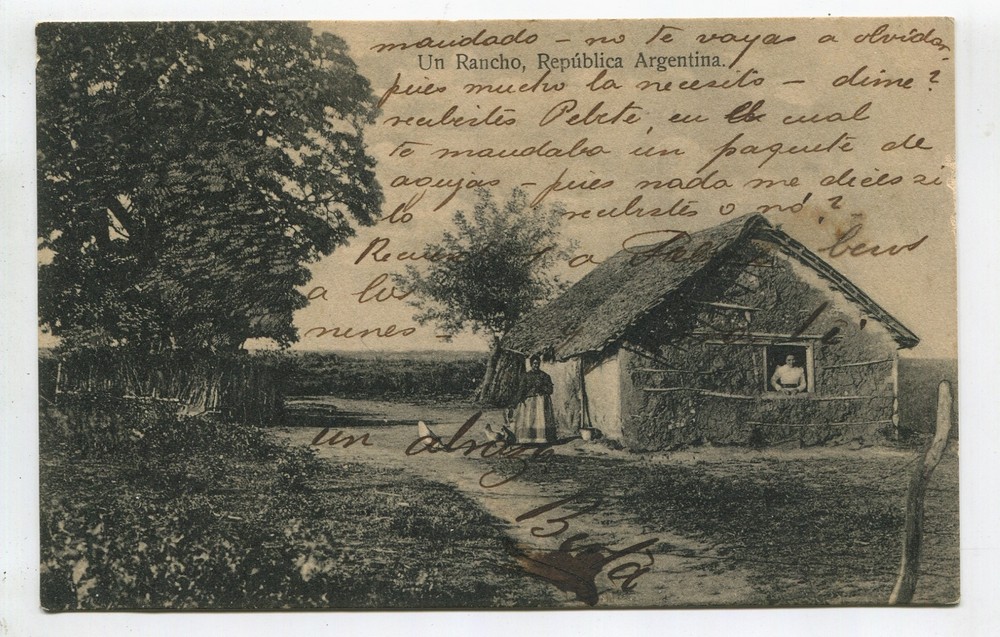 mandado - no te vayas a olvidar
Un Rancho, República Argentina.
pues mucho la necesito - dime?
recibistes en el cual
te mandaba un paquete de
agujas - pues nada me dices si
lo recibistes o nó?
a besos
a los
nenes -
un abrazo
Berta